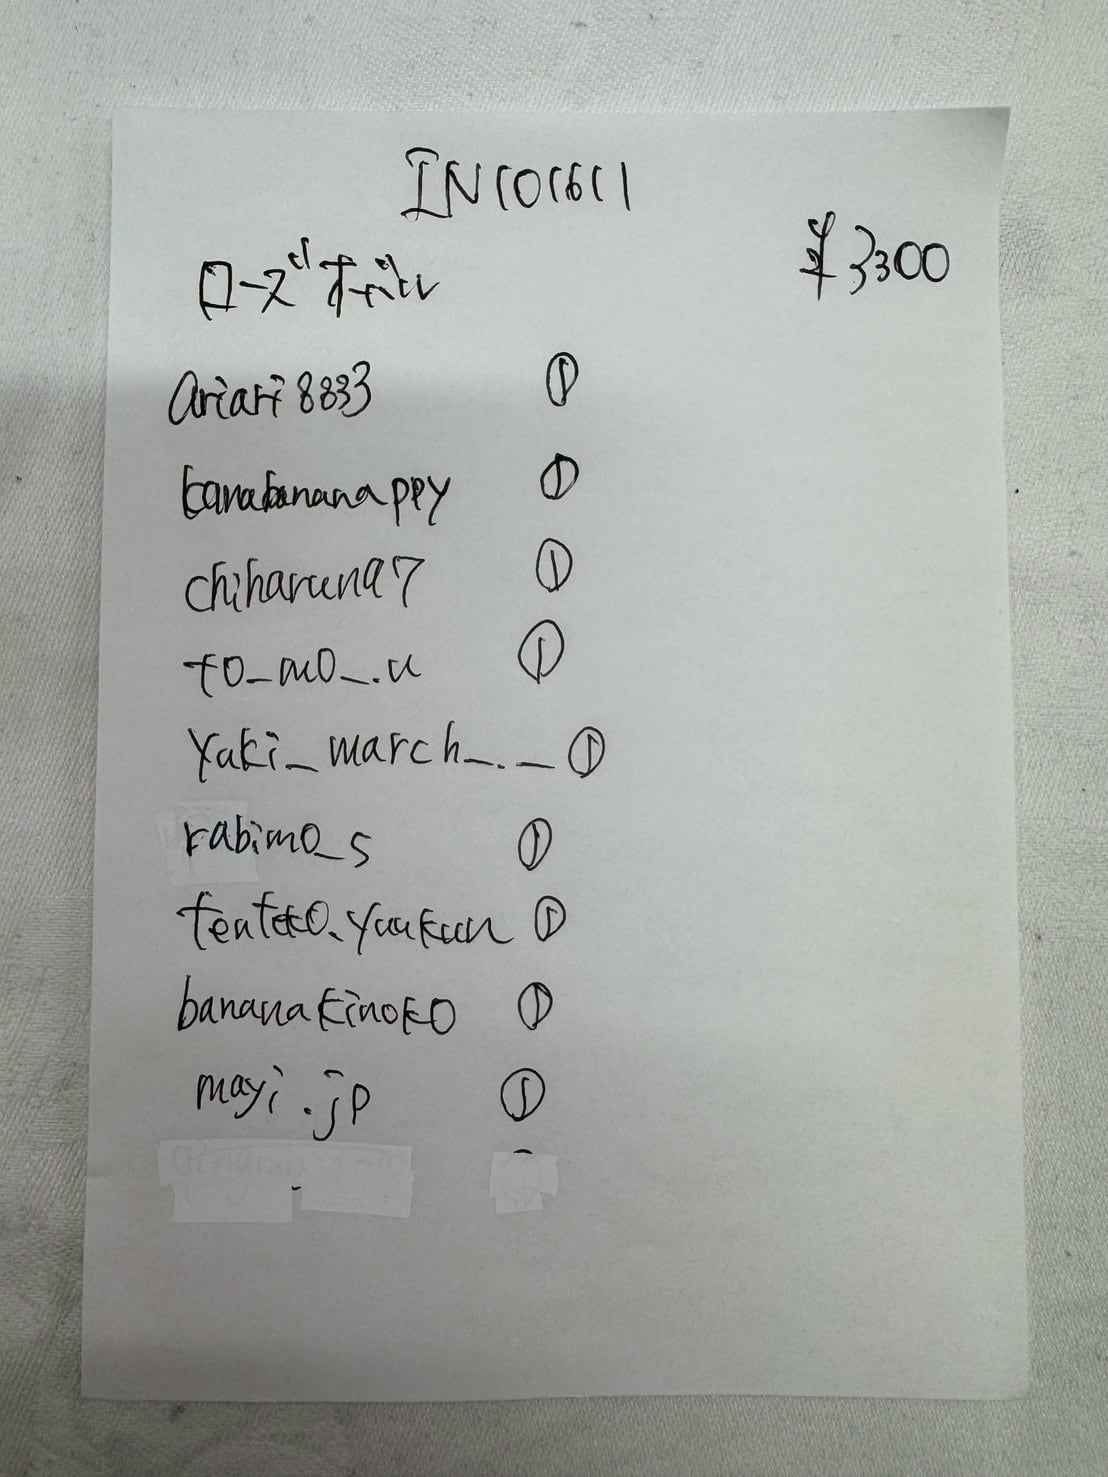 IN101611
ローズオイル
¥3300
ariari8833 ①
banabananappy ①
chiharuna97 ①
to_mo_.u ①
yuki_march_._ ①
rabimo_s ①
tenteko.yuukun ①
bananakinoko ①
mayi.jp ①